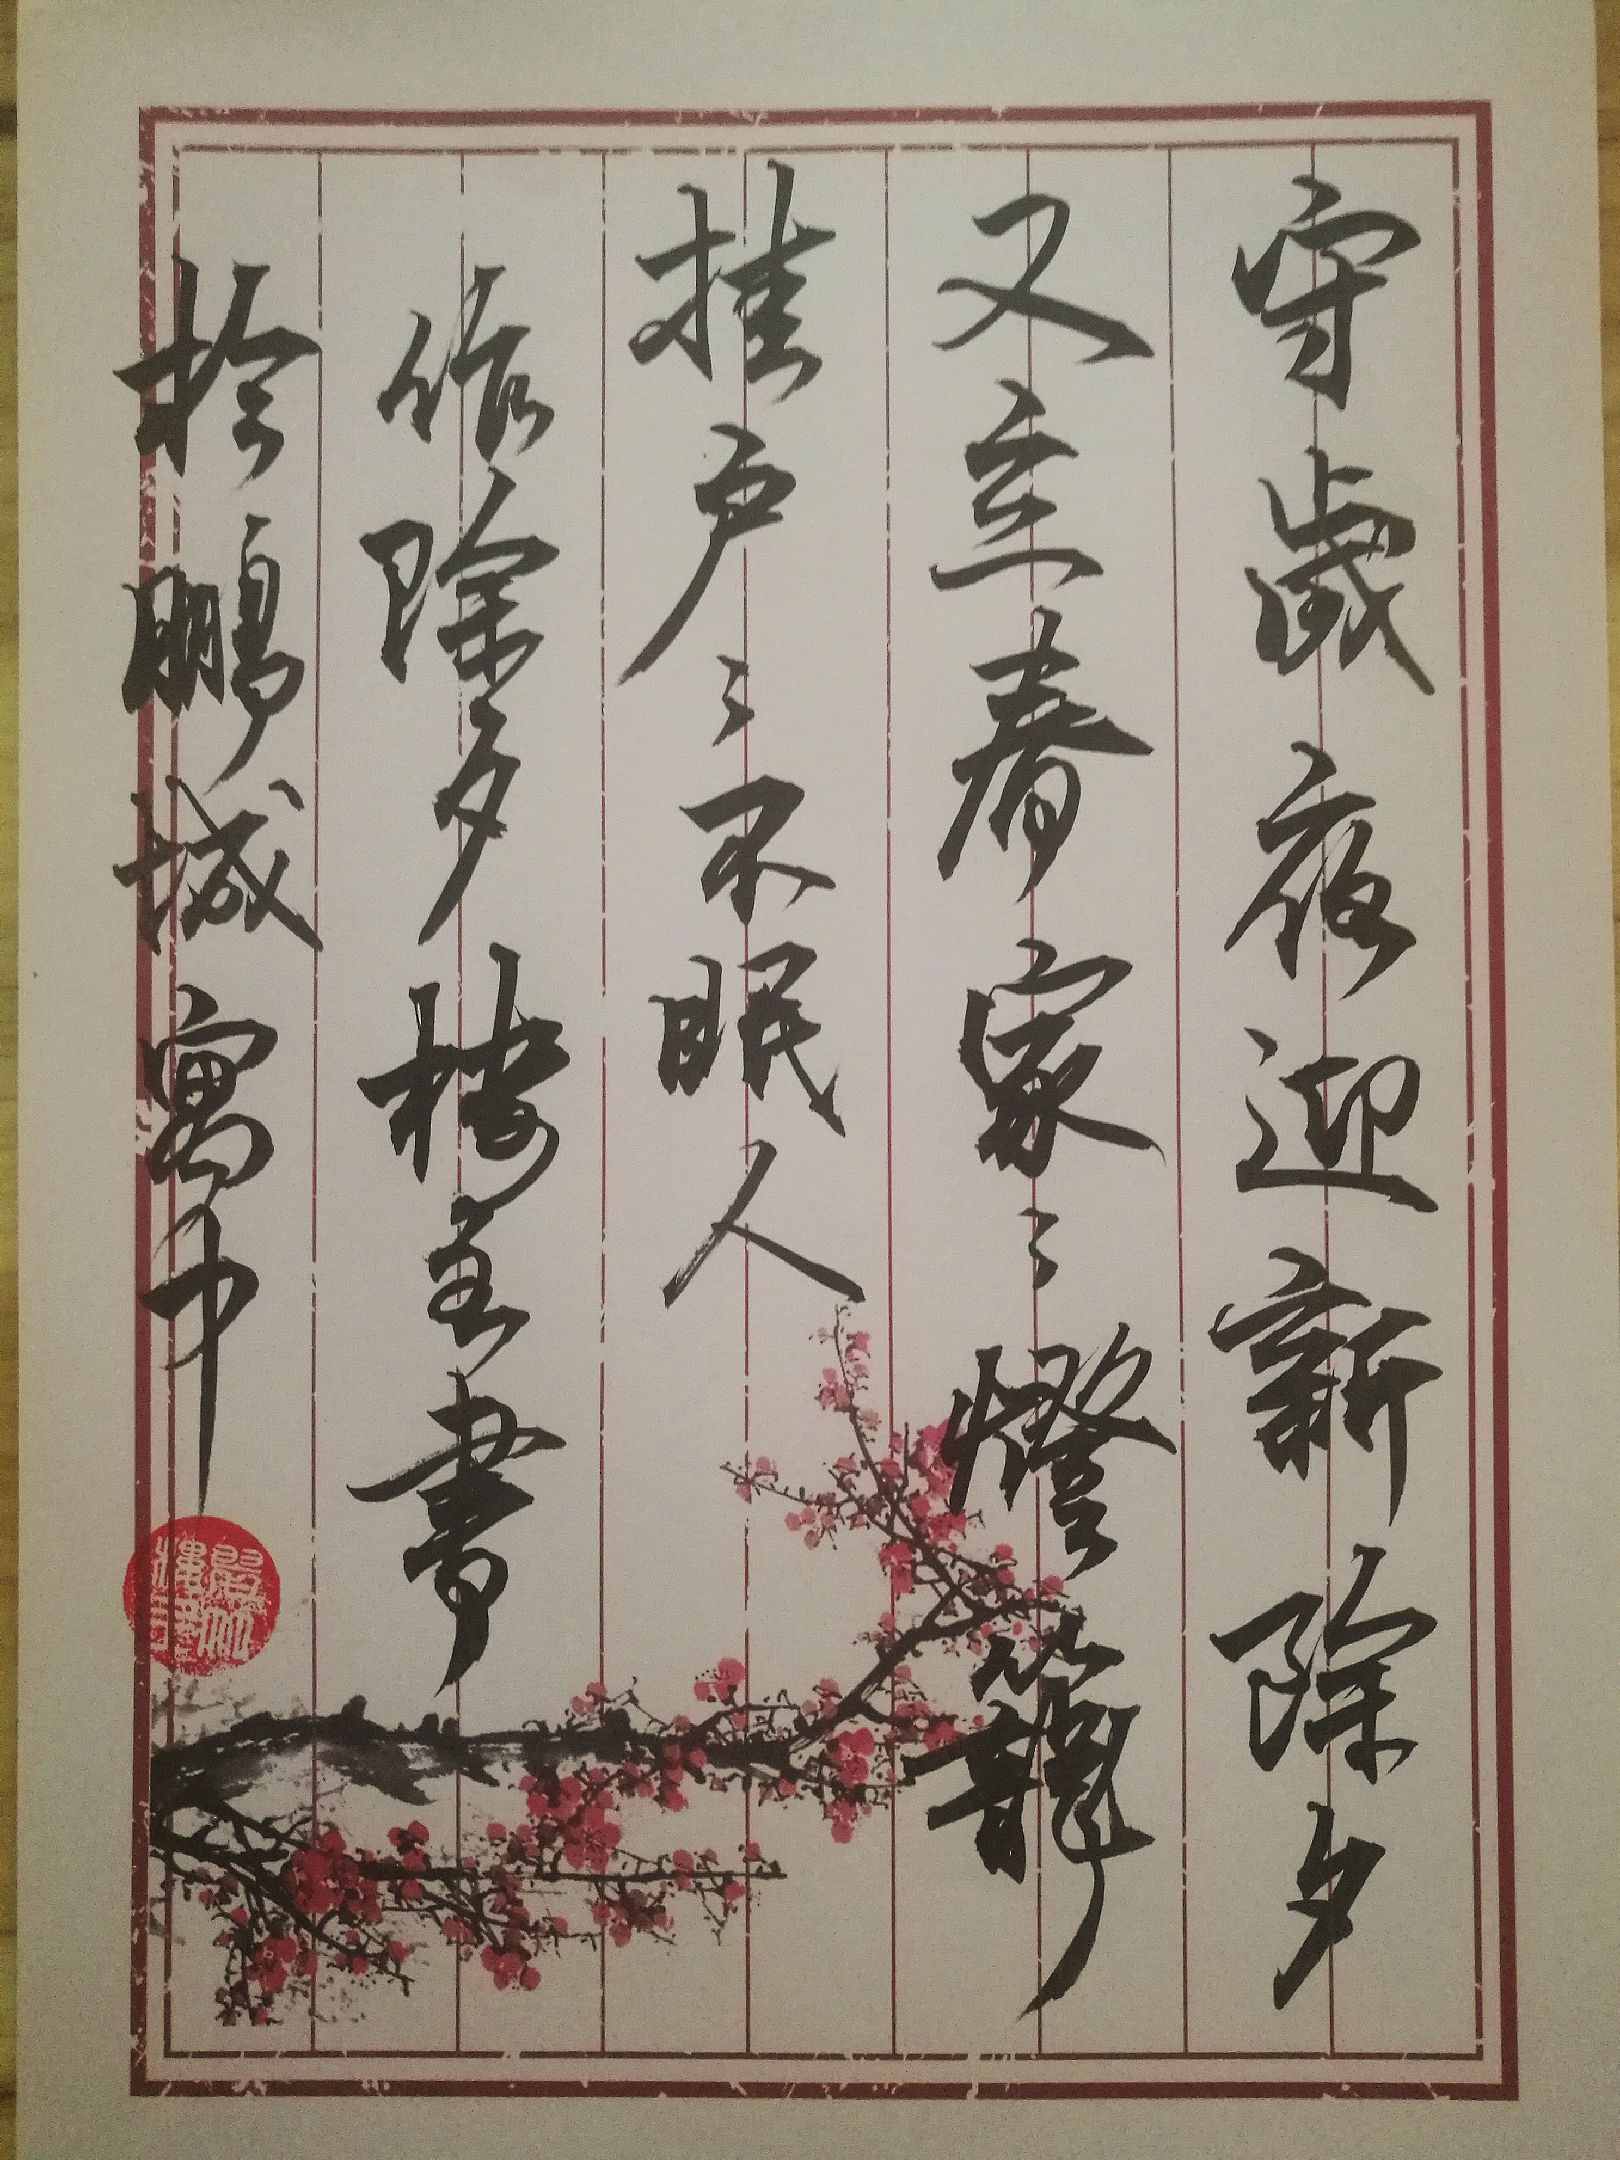 守歲夜迎新除夕
又立春家〻燈籠
挂戶〻不眠人
作除夕楼主書
於鵬城寓中